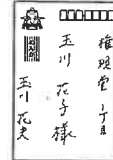 権現堂 1丁目
玉川 花子様
玉川 花夫